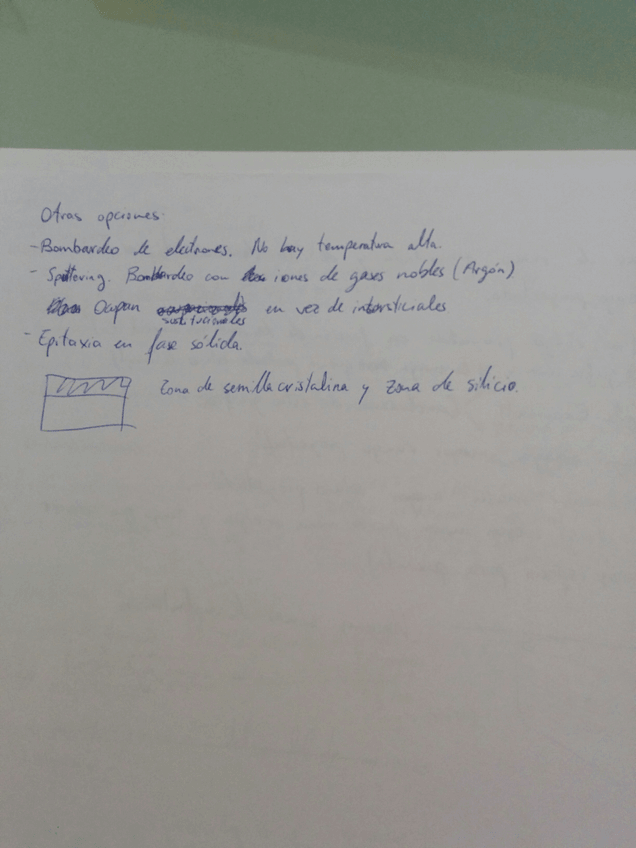 Otras opciones:
- Bombardeo de electrones. No hay temperatura alta.
- Sputtering. Bombardeo con iones de gases nobles (Argón)
Ocupan sustitucionales en vez de intersticiales
- Epitaxia en fase sólida.
Zona de semilla cristalina y zona de silicio.